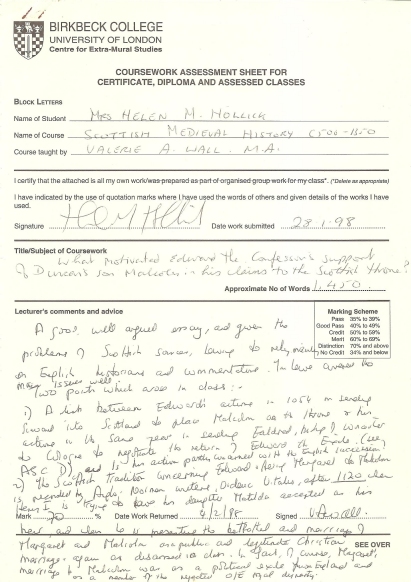 BIRKBECK COLLEGE
UNIVERSITY OF LONDON
Centre for Extra-Mural Studies
COURSEWORK ASSESSMENT SHEET FOR
CERTIFICATE, DIPLOMA AND ASSESSED CLASSES
BLOCK LETTERS
Name of Student MRS HELEN M. HOLLICK
Name of Course SCOTTISH MEDIEVAL HISTORY C500-1350
Course taught by VALERIE A. WALL. M.A.
I certify that the attached is all my own work/was prepared as part of organised group work for my class*. (*Delete as appropriate)
I have indicated by the use of quotation marks where I have used the words of others and given details of the works I have
used.
Signature Date work submitted 28.1.98
Title/Subject of Coursework
What motivated Edward the Confessor's support
of Duncan's son Malcolm in his claims to the Scottish throne?
Approximate No of Words 1,450
Lecturer's comments and advice
Marking Scheme
Pass 35% to 39%
Good Pass 40% to 49%
Credit 50% to 59%
Merit 60% to 69%
Distinction 70% and above
No Credit 34% and below
A good, well argued essay, and given the
problems of Scottish sources, having to rely mainly
on English historians and commentators. I'm
many issues well.
Two points which arose in class:-
1) A link between Edward's actions in 1054 in sending
Siward into Scotland to place Malcolm on the throne & his
actions in the same year in sending Ealdred, Bishop of Worcester
to Cologne to negotiate the return of Edward the Exile. (see
ASC D) and is his action partly concerned with the English succession
2) The Scottish Tradition concerning Edward giving Margaret to Malcolm
is recorded by Anglo-Norman writers, Orderic Vitalis, after 1120 when
Henry I is trying to have his daughter Matilda accepted as his
Mark 70 % Date Work Returned 4/2/98 Signed VAWall
heir and when he is presenting the betrothal and marriage of
Margaret and Malcolm as a public and legitimate Christian
marriage again as discussed in class. In fact, of course, Margaret's
SEE OVER
marriage to Malcolm was as a political exile from England and
as a member of the rejected O/E royal dynasty.